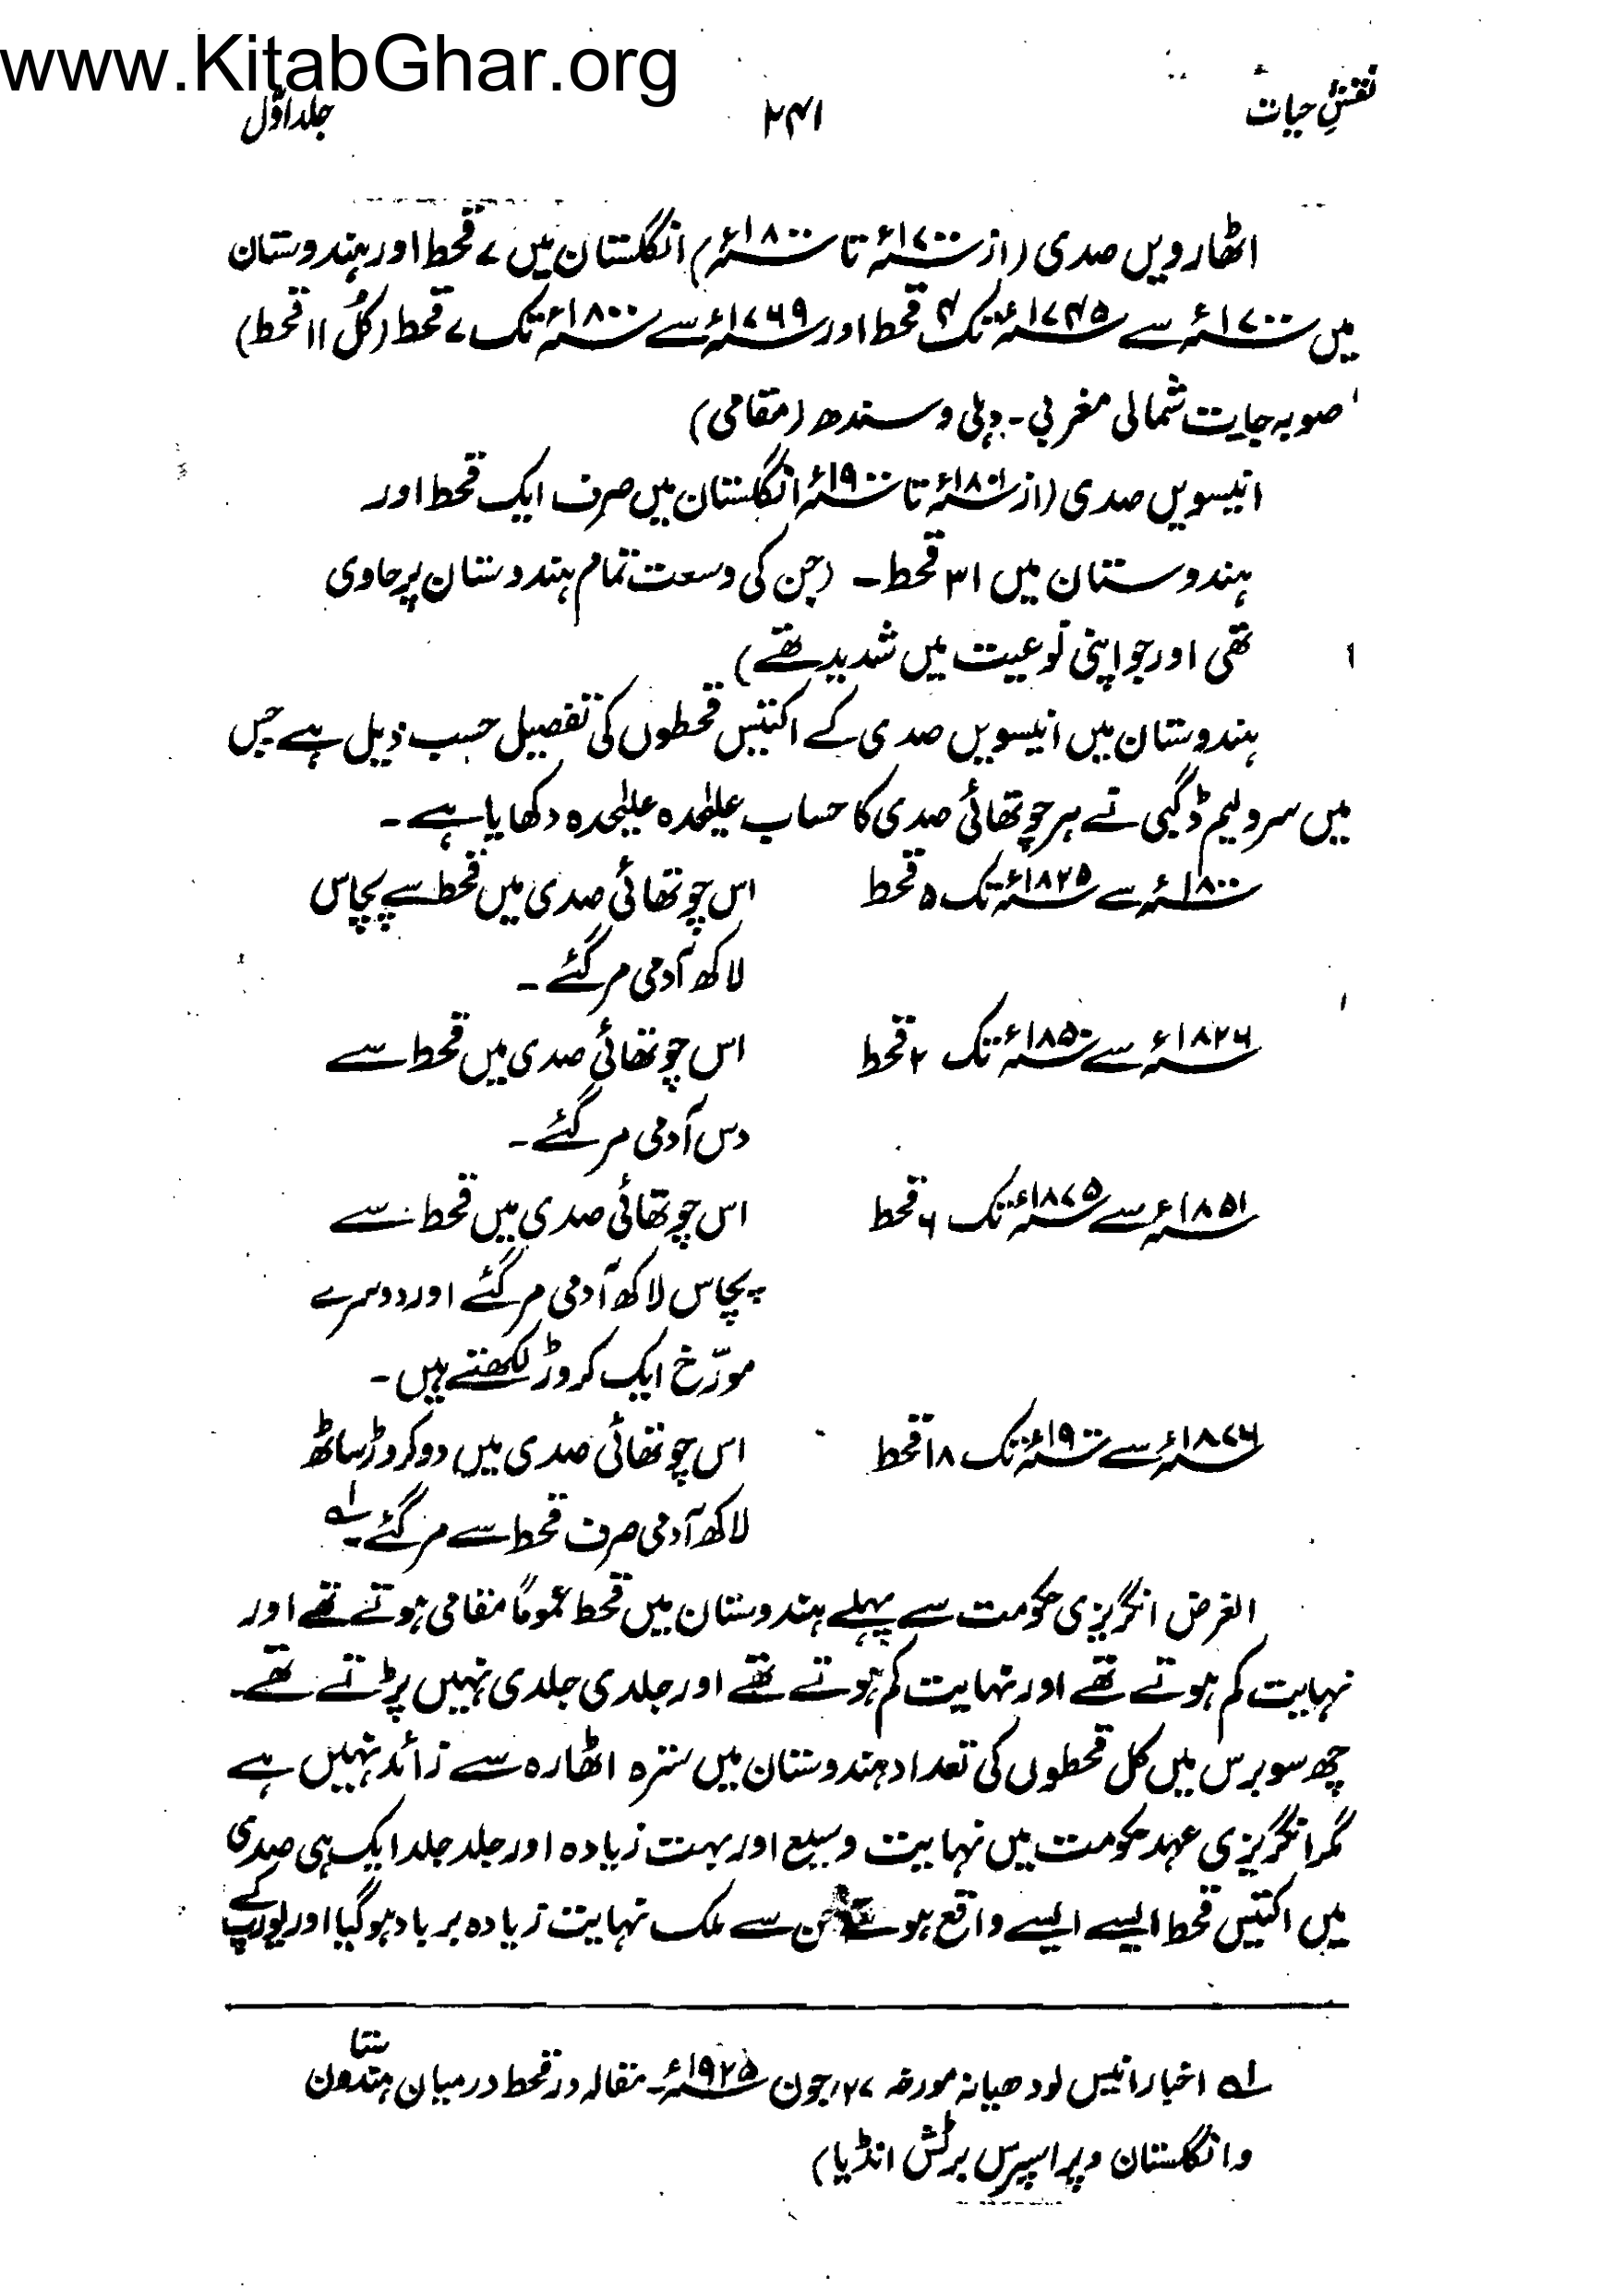 www.KitabGhar.org
نقشِ حیات ۲۴۱ جلد اوّل
اٹھارویں صدی (از ۱۷۰۰ء تا ۱۸۰۰ء) انگلستان میں ۷ قحط اور ہندوستان
میں ۱۷۰۰ء سے ۱۷۴۵ء تک ۴ قحط اور ۱۷۶۹ء سے ۱۸۰۰ء تک ۷ قحط (کُل ۱۱ قحط)
صوبہ جات شمالی مغربی ۔ دہلی و سندھ (مقامی)
انیسویں صدی (از ۱۸۰۱ء تا ۱۹۰۰ء انگلستان میں صرف ایک قحط اور
ہندوستان میں ۳۱ قحط ۔ (جن کی وسعت تمام ہندوستان پر حاوی
تھی اور جو اپنی نوعیت میں شدید تھے)
ہندوستان میں انیسویں صدی کے اکتیس قحطوں کی تفصیل حسب ذیل ہے جس
میں سرولیم ڈگبی نے ہر چوتھائی صدی کا حساب علیٰحدہ علیٰحدہ دکھایا ہے ۔
۱۸۰۰ء سے ۱۸۲۵ء تک ۵ قحط اس چوتھائی صدی میں قحط سے پچاس
لاکھ آدمی مر گئے ۔
۱۸۲۶ء سے ۱۸۵۰ء تک ۲ قحط اس چوتھائی صدی میں قحط سے
دس آدمی مر گئے ۔
۱۸۵۱ء سے ۱۸۷۵ء تک ۶ قحط اس چوتھائی صدی میں قحط سے
پچاس لاکھ آدمی مر گئے اور دوسرے
مورّخ ایک کروڑ لکھتے ہیں ۔
۱۸۷۶ء سے ۱۹۰۰ء تک ۱۸ قحط اس چوتھائی صدی میں دو کروڑ ساٹھ
لاکھ آدمی صرف قحط سے مر گئے ۔ ۱؎
الغرض انگریزی حکومت سے پہلے ہندوستان میں قحط عموماً مقامی ہوتے تھے اور
نہایت کم ہوتے تھے اور نہایت کم ہوتے تھے اور جلدی جلدی نہیں پڑتے تھے ۔
چھ سو برس میں کل قحطوں کی تعداد ہندوستان میں سترہ اٹھارہ سے زائد نہیں ہے
مگر انگریزی عہد حکومت میں نہایت وسیع اور بہت زیادہ اور جلد جلد ایک ہی صدی
میں اکتیس قحط ایسے ایسے واقع ہوئے جن سے ملک نہایت زیادہ برباد ہوگیا اور یورپ کے
۱؎ اخبار انیس لودھیانہ مورخہ ۲۷؍ جون ۱۹۲۵ء ۔ مقالہ در قحط درمیان ہندوستان
و انگلستان و پراسپرس برٹش انڈیا)